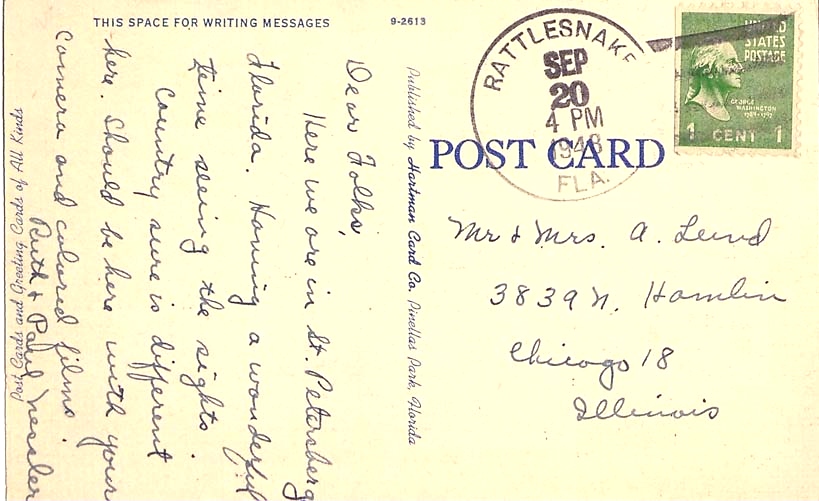 THIS SPACE FOR WRITING MESSAGES
9-2613
Dear Folks,
Here we are in St. Petersberg
Florida. Having a wonderful
time seeing the sights.
Country sure is different
here. Should be here with your
camera and colored films.
Ruth & Paul Nessler
Post Cards and Greeting Cards of All Kinds
Published by Hartman Card Co. Pinellas Park, Florida
RATTLESNAKE
SEP
20
4 PM
1948
FLA.
UNITED
STATES
POSTAGE
GEORGE
WASHINGTON
1789-1797
1 CENT 1
POST CARD
Mr & Mrs. A. Lund
3839 N. Hamlin
Chicago 18
Illinois